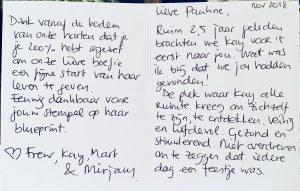 Dank vanaf de bodem
van onze harten dat je
je 200% hebt gegeven
om onze lieve boefjes
een fijne start van haar
leven te geven.
Eeuwig dankbaar voor
jouw stempel op haar
blueprint.
♡ Frew, Kay, Mart
& Mirjam
nov 2018
Lieve Pauline,
Ruim 2,5 jaar geleden
brachten we Kay voor 't
eerst naar jou. Wat was
ik blij dat we jou hadden
gevonden!
De plek waar Kay alle
Ruimte kreeg om zichzelf
te zijn, te ontdekken. Veilig
en liefdevol. Gezond en
stimulerend. Niet overdreven
om te zeggen dat iedere
dag een feestje was.